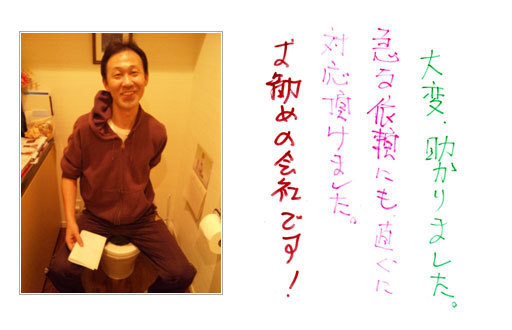 大変、助かりました。
急な依頼にも、直ぐに
対応頂けました。
お勧めの会社です！